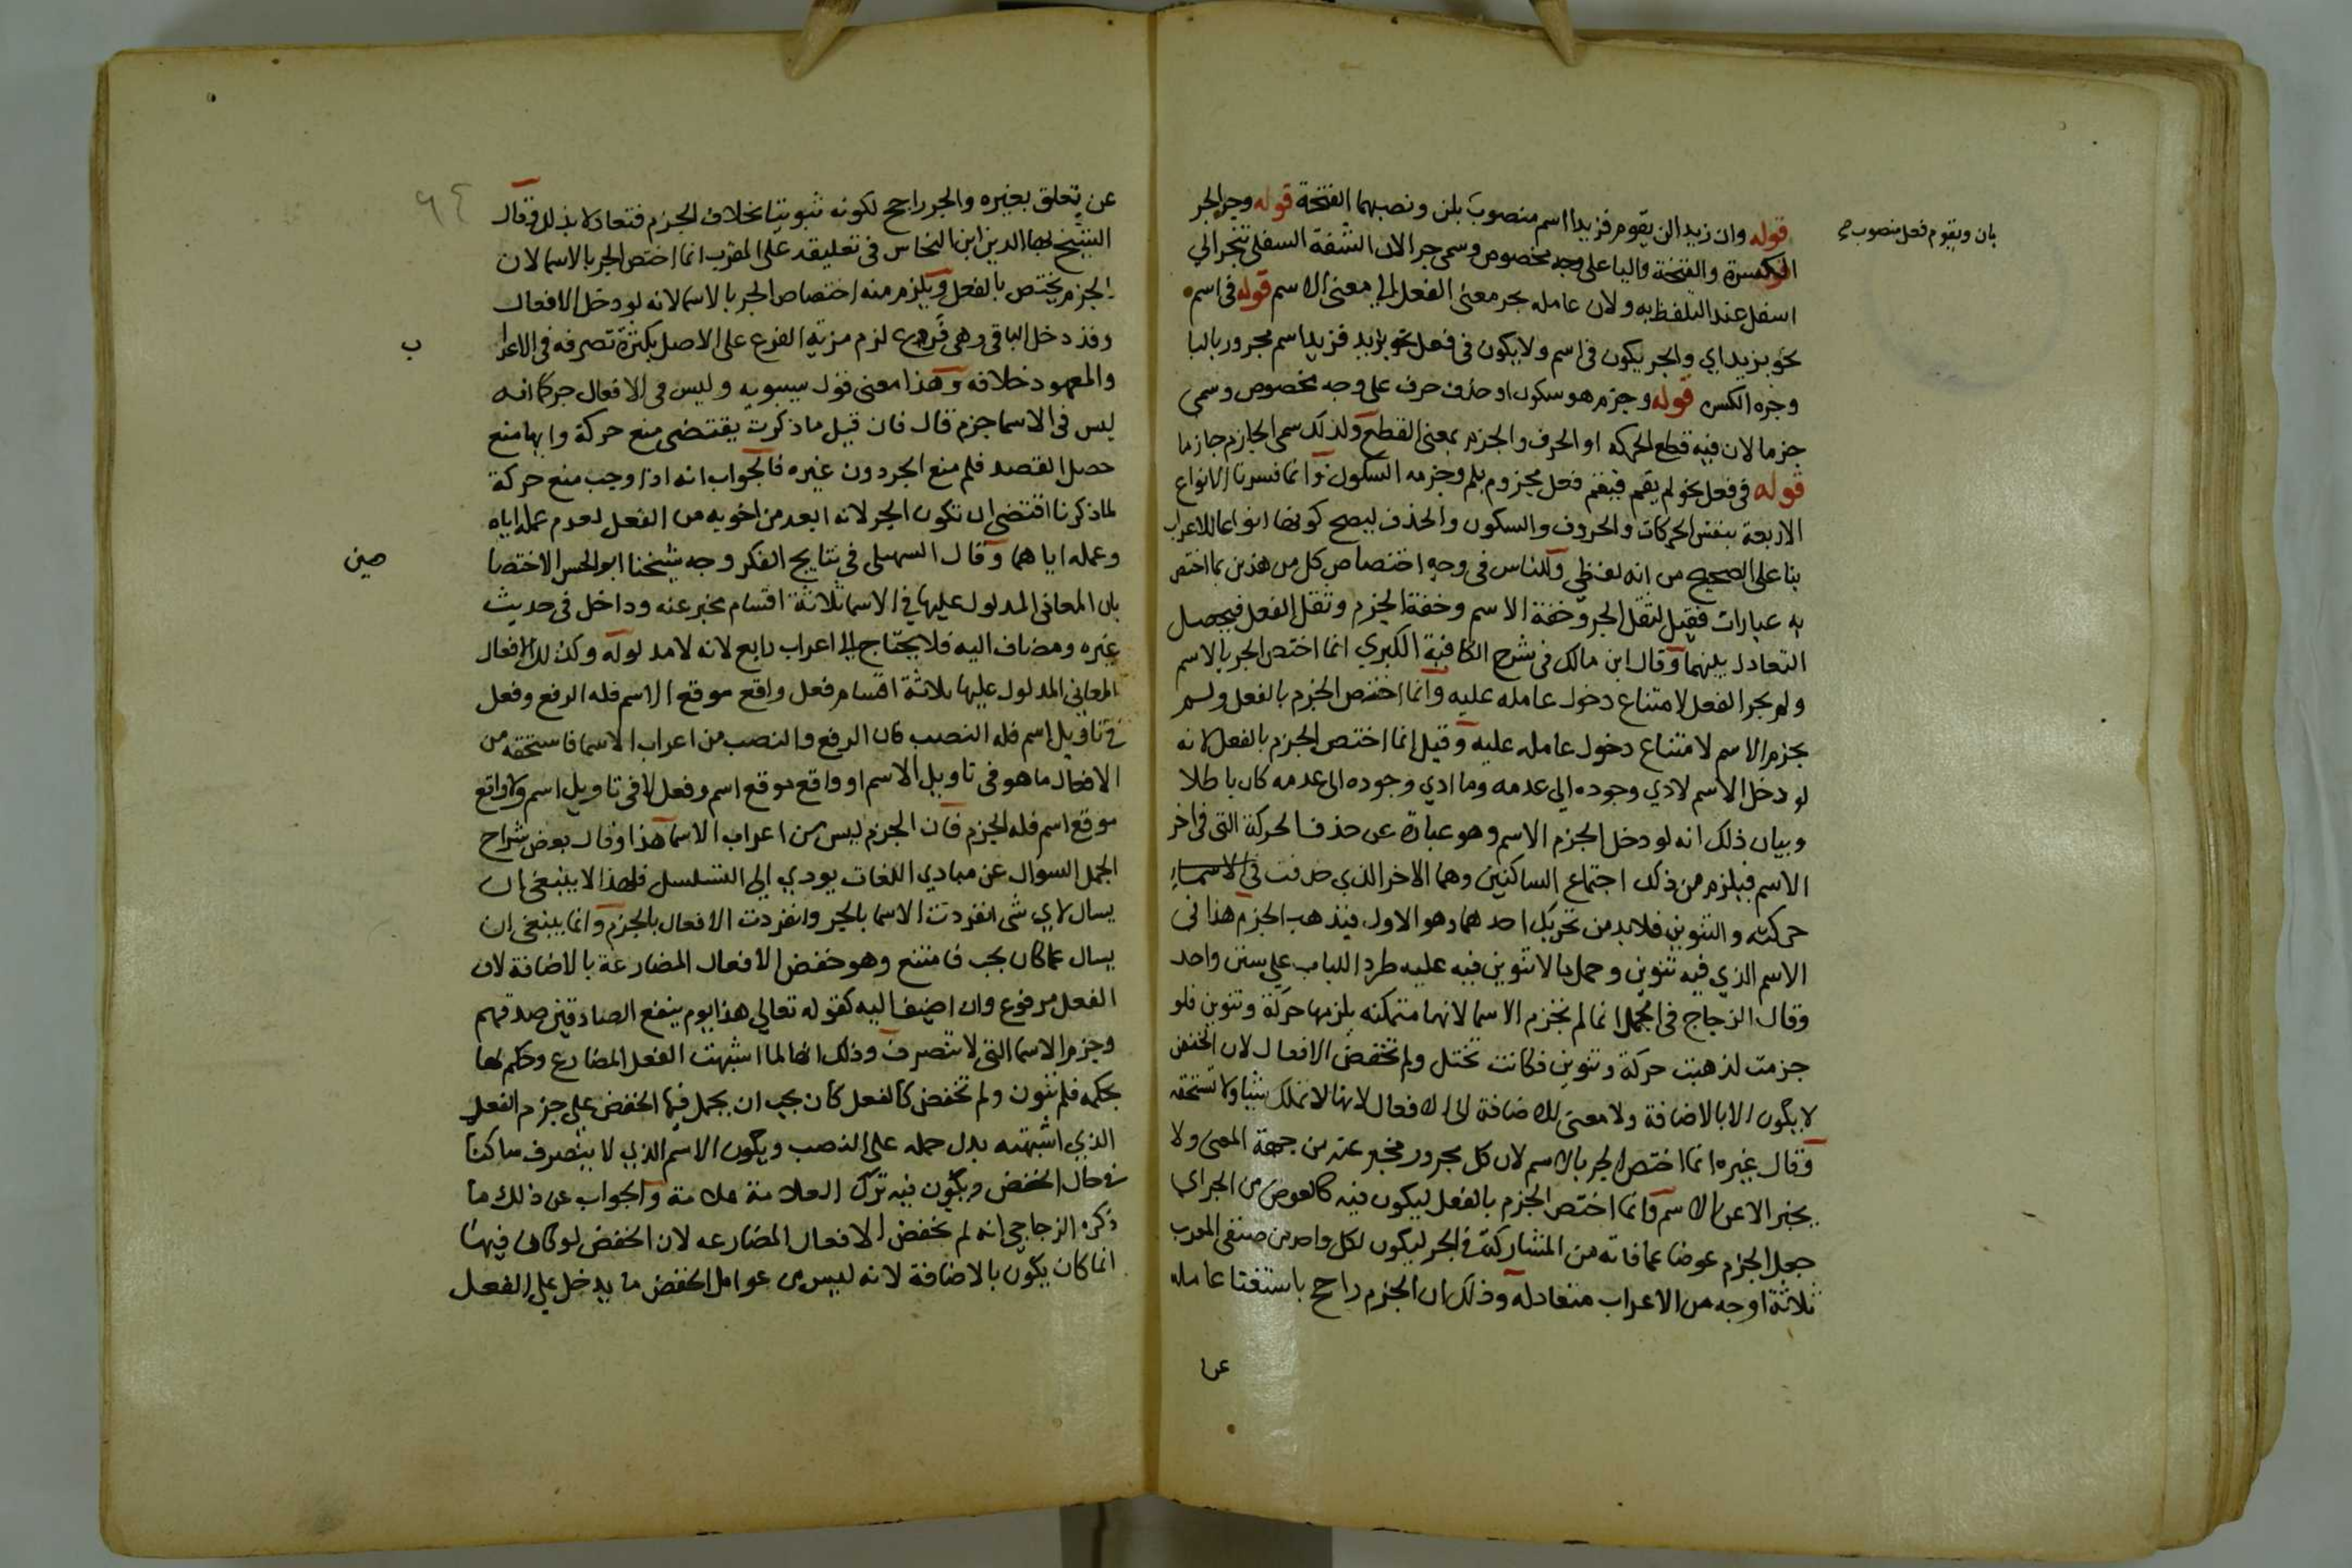 قوله وان زيدا لن يقوم فزيدا اسم منصوب بلن ونصبهما الفتحة قوله وجر الجر
بان ويقوم فعل منصوب صح
الكسرة والفتحة واليا على وجه مخصوص وسمى جرا لان الشفة السفلى تنجر الي
اسفل عند التلفظ به ولان عامله يجر معنى الفعل الي معنى الاسم قوله في اسم
نحو بزيد اي والجر يكون في اسم ولا يكون في فعل نحو بزيد فزيد اسم مجرور بالبا
وجره الكسر قوله وجزم هو سكون او حذف حرف على وجه مخصوص وسمى
جزما لان فيه قطع الحركه او الحرف والجزم بمعنى القطع ولذلك سمى الجازم جازما
قوله في فعل نحو لم يقم فيقم فعل مجزوم بلم وجزمه السكون وانما فسرنا الانواع
الاربعة بنفس الحركات والحروف والسكون والحذف ليصح كونها انواعا للاعراب
بنا على الصحيح من انه لفظي وللناس في وجه اختصاص كل من هذين بما اختص
به عبارات فقيل لثقل الجر وخفة الاسم وخفة الجزم وثقل الفعل فيحصل
التعادل بينهما وقال ابن مالك في شرح الكافية الكبري انما اختص الجر بالاسم
ولم يجر الفعل لامتناع دخول عامله عليه وانما اختص الجزم بالفعل ولم
يجزم الاسم لامتناع دخول عامله عليه وقيل انما اختص الجزم بالفعل لانه
لو دخل الاسم لادي وجوده الي عدمه وما ادي وجوده الى عدمه كان باطلا
وبيان ذلك انه لو دخل الجزم الاسم وهو عبارة عن حذف الحركة التى في اخر
الاسم فيلزم من ذلك اجتماع الساكنين وهما الاخر الذي حذفت في الاسما
حركته والتنوين فلابد من تحريك احدهما وهو الاول فيذهب الجزم هذا في
الاسم الذي فيه تنوين وحمل ما لا تنوين فيه عليه طردا للباب على سنن واحد
وقال الزجاج في الجمل انما لم تجزم الاسما لانها متمكنه يلزمها حركة وتنوين فلو
جزمت لذهبت حركة وتنوين فكانت تختل ولم تخفض الافعال لان الخفض
لا يكون الا بالاضافة ولا معنى للاضافة الى الافعال لانها لا تملك شيا ولا تستحقه
وقال غيره انما اختص الجر بالاسم لان كل مجرور مخبر عنه من جهة المعنى ولا
يخبر الا عن الاسم وانما اختص الجزم بالفعل ليكون فيه كالعوض من الجر اي
جعل الجزم عوضا عما فاته من المشاركة في الجر ليكون لكل واحد من صنفي المعرب
ثلاثة اوجه من الاعراب متعادله وذلك ان الجزم راجح باستغنا عامله
عن
٦٤
عن تعلق بغيره والجر راجح لكونه ثبوتيا بخلاف الجزم فتعادلا بذلك وقال
الشيخ بها الدين ابن النحاس في تعليقه على المقرب انما اختص الجر بالاسما لان
الجزم يختص بالفعل ويلزم منه اختصاص الجر بالاسما لانه لو دخل الافعال
وقد دخل الباقي وهي فرع لزم مزية الفرع على الاصل بكثرة تصرفه في الاعرا
ب
والمعهود خلافه وهذا معنى قول سيبويه وليس في الافعال جر كما انه
ليس في الاسما جزم قال فان قيل ما ذكرت يقتضى منع حركة وايها منع
حصل القصد فلم منع الجر دون غيره فالجواب انه اذا وجب منع حركة
لما ذكرنا اقتضى ان تكون الجر لانه ابعد من اخويه من الفعل لعدم عمله اياه
وعمله اياهما وقال السهيلي في نتايج الفكر وجه شيخنا ابو الحسن الاختصا
صين
بان المعاني المدلول عليها في الاسما ثلاثة اقسام مخبر عنه وداخل في حديث
غيره ومضاف اليه فلا يحتاج الى اعراب رابع لانه لا مدلول له وكذلك الافعال
المعاني المدلول عليها ثلاثة اقسام فعل واقع موقع الاسم فله الرفع وفعل
في تاويل اسم فله النصب فان الرفع والنصب من اعراب الاسما فاستحقه من
الافعال ما هو في تاويل الاسم او واقع موقع اسم وفعل لا في تاويل اسم ولا واقع
موقع اسم فله الجزم فان الجزم ليس من اعراب الاسما هذا وقال بعض شراح
الجمل السوال عن مبادي اللغات يودي الي التسلسل فلهذا لا ينبغي ان
يسال لاي شى انفردت الاسما بالجر وانفردت الافعال بالجزم وانما ينبغي ان
يسال عما كان يجب فامتنع وهو خفض الافعال المضارعة بالاضافة لان
الفعل مرفوع وان اضيف اليه كقوله تعالي هذا يوم ينفع الصادقين صدقهم
وجزم الاسما التى لا تنصرف وذلك انها لما اشبهت الفعل المضارع وحكم لها
بحكمه فلم تنون ولم تخفض كالفعل كان يجب ان يحمل فيها الخفض على جزم الفعل
الذي اشبهته بدل حمله على النصب ويكون الاسم الذي لا ينصرف ساكنا
في حال الخفض ويكون فيه ترك العلامة علامة والجواب عن ذلك ما
ذكره الزجاجي انه لم يخفض الافعال المضارعه لان الخفض لو كان فيها
انما كان يكون بالاضافة لانه ليس من عوامل الخفض ما يدخل على الفعل